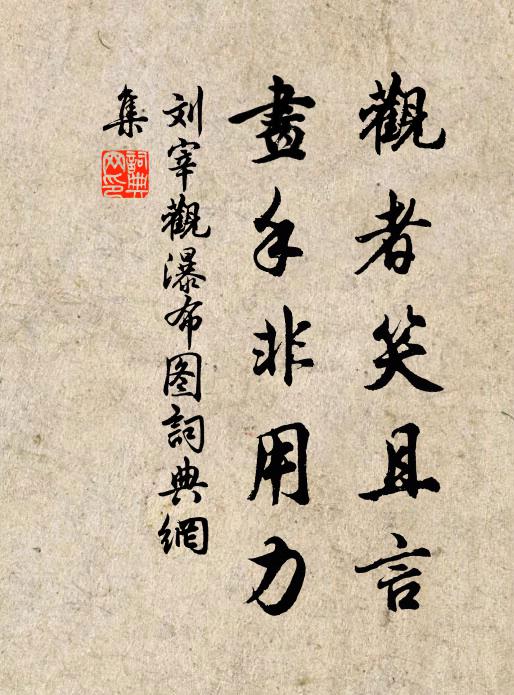 觀者笑且言
畫手非用力
刘宰觀瀑布图詞典網
集
詞典网印